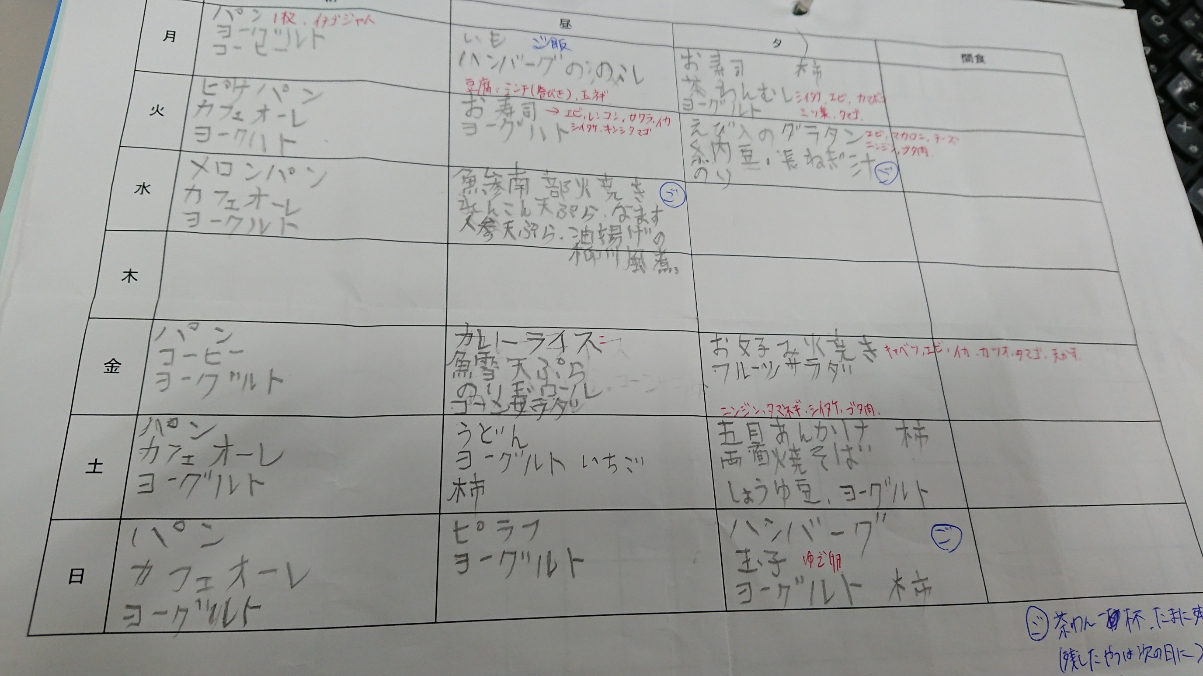 昼
夕
間食
月
パン 1枚、イチゴジャム
ヨーグルト
コーヒー
いも ご飯
ハンバーグののこし
豆腐、ミンチ(合びき)、玉ネギ
お寿司 柿
茶わんむし シイタケ、エビ、カマボコ
ヨーグルト ミツ葉、タマゴ
火
ピザパン
カフェオーレ
ヨーグルト
お寿司 → エビ、レンコン、サワラ、イカ
ヨーグルト シイタケ、キンシタマゴ
えび入のグラタン エビ、マカロニ、チーズ
ニンジン、ブタ肉
納豆、長ねぎ汁 ご
のり
水
メロンパン
カフェオーレ
ヨーグルト
魚參南部火堯き ご
れんこん天ぷら、なます
人参天ぷら、油揚げの
柳川風煮。
木
金
パン
コーヒー
ヨーグルト
カレーライス
魚雪天ぷら
のり
コーンサラダ
お好み火堯き キャベツ、エビ、イカ、カツオ、タマゴ、天かす
フルーツサラダ
ニンジン、タマネギ、シイタケ、ブタ肉
土
パン
カフェオーレ
ヨーグルト
うどん
ヨーグルト いちご
柿
五目あんかけ 柿
両面焼そば
しょうゆ豆、ヨーグルト
日
パン
カフェオーレ
ヨーグルト
ピラフ
ヨーグルト
ハンバーグ ご
玉子 ゆで卵
ヨーグルト 柿
ご 茶わん一杯、たまに
(残したやつは次の日に〜)